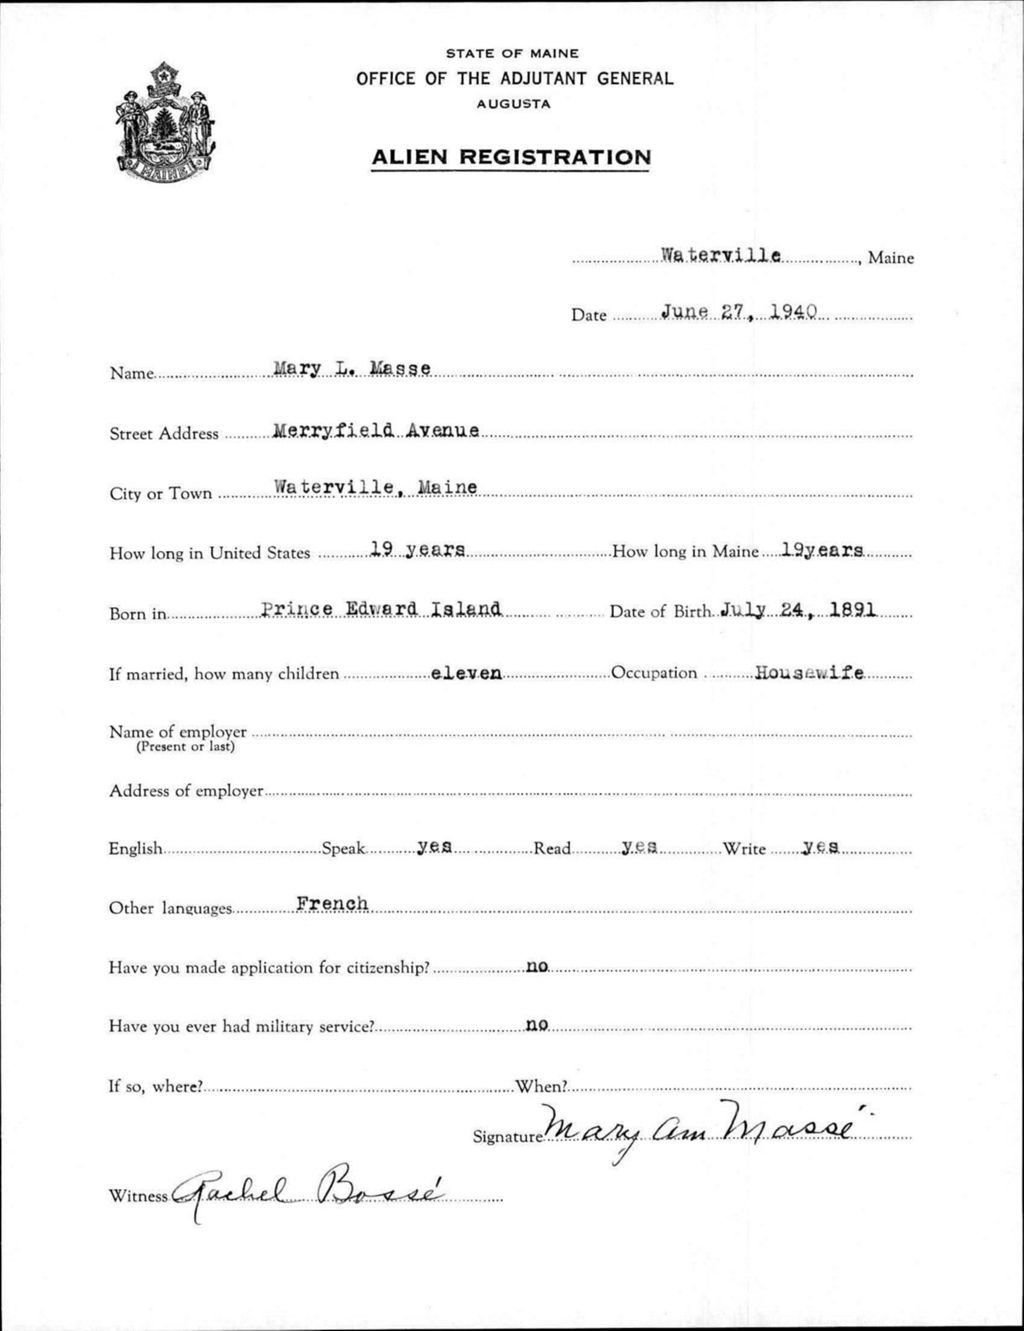 STATE OF MAINE
OFFICE OF THE ADJUTANT GENERAL
AUGUSTA
ALIEN REGISTRATION
MAINE
Waterville, Maine
Date June 27, 1940
Name Mary L. Masse
Street Address Merryfield Avenue
City or Town Waterville, Maine
How long in United States 19 years How long in Maine 19years
Born in Prince Edward Island Date of Birth July 24, 1891
If married, how many children eleven Occupation Housewife
Name of employer
(Present or last)
Address of employer
English Speak yes Read yes Write yes
Other languages French
Have you made application for citizenship? no
Have you ever had military service? no
If so, where? When?
Signature Mary Ann Massé
Witness Rachel Bossé